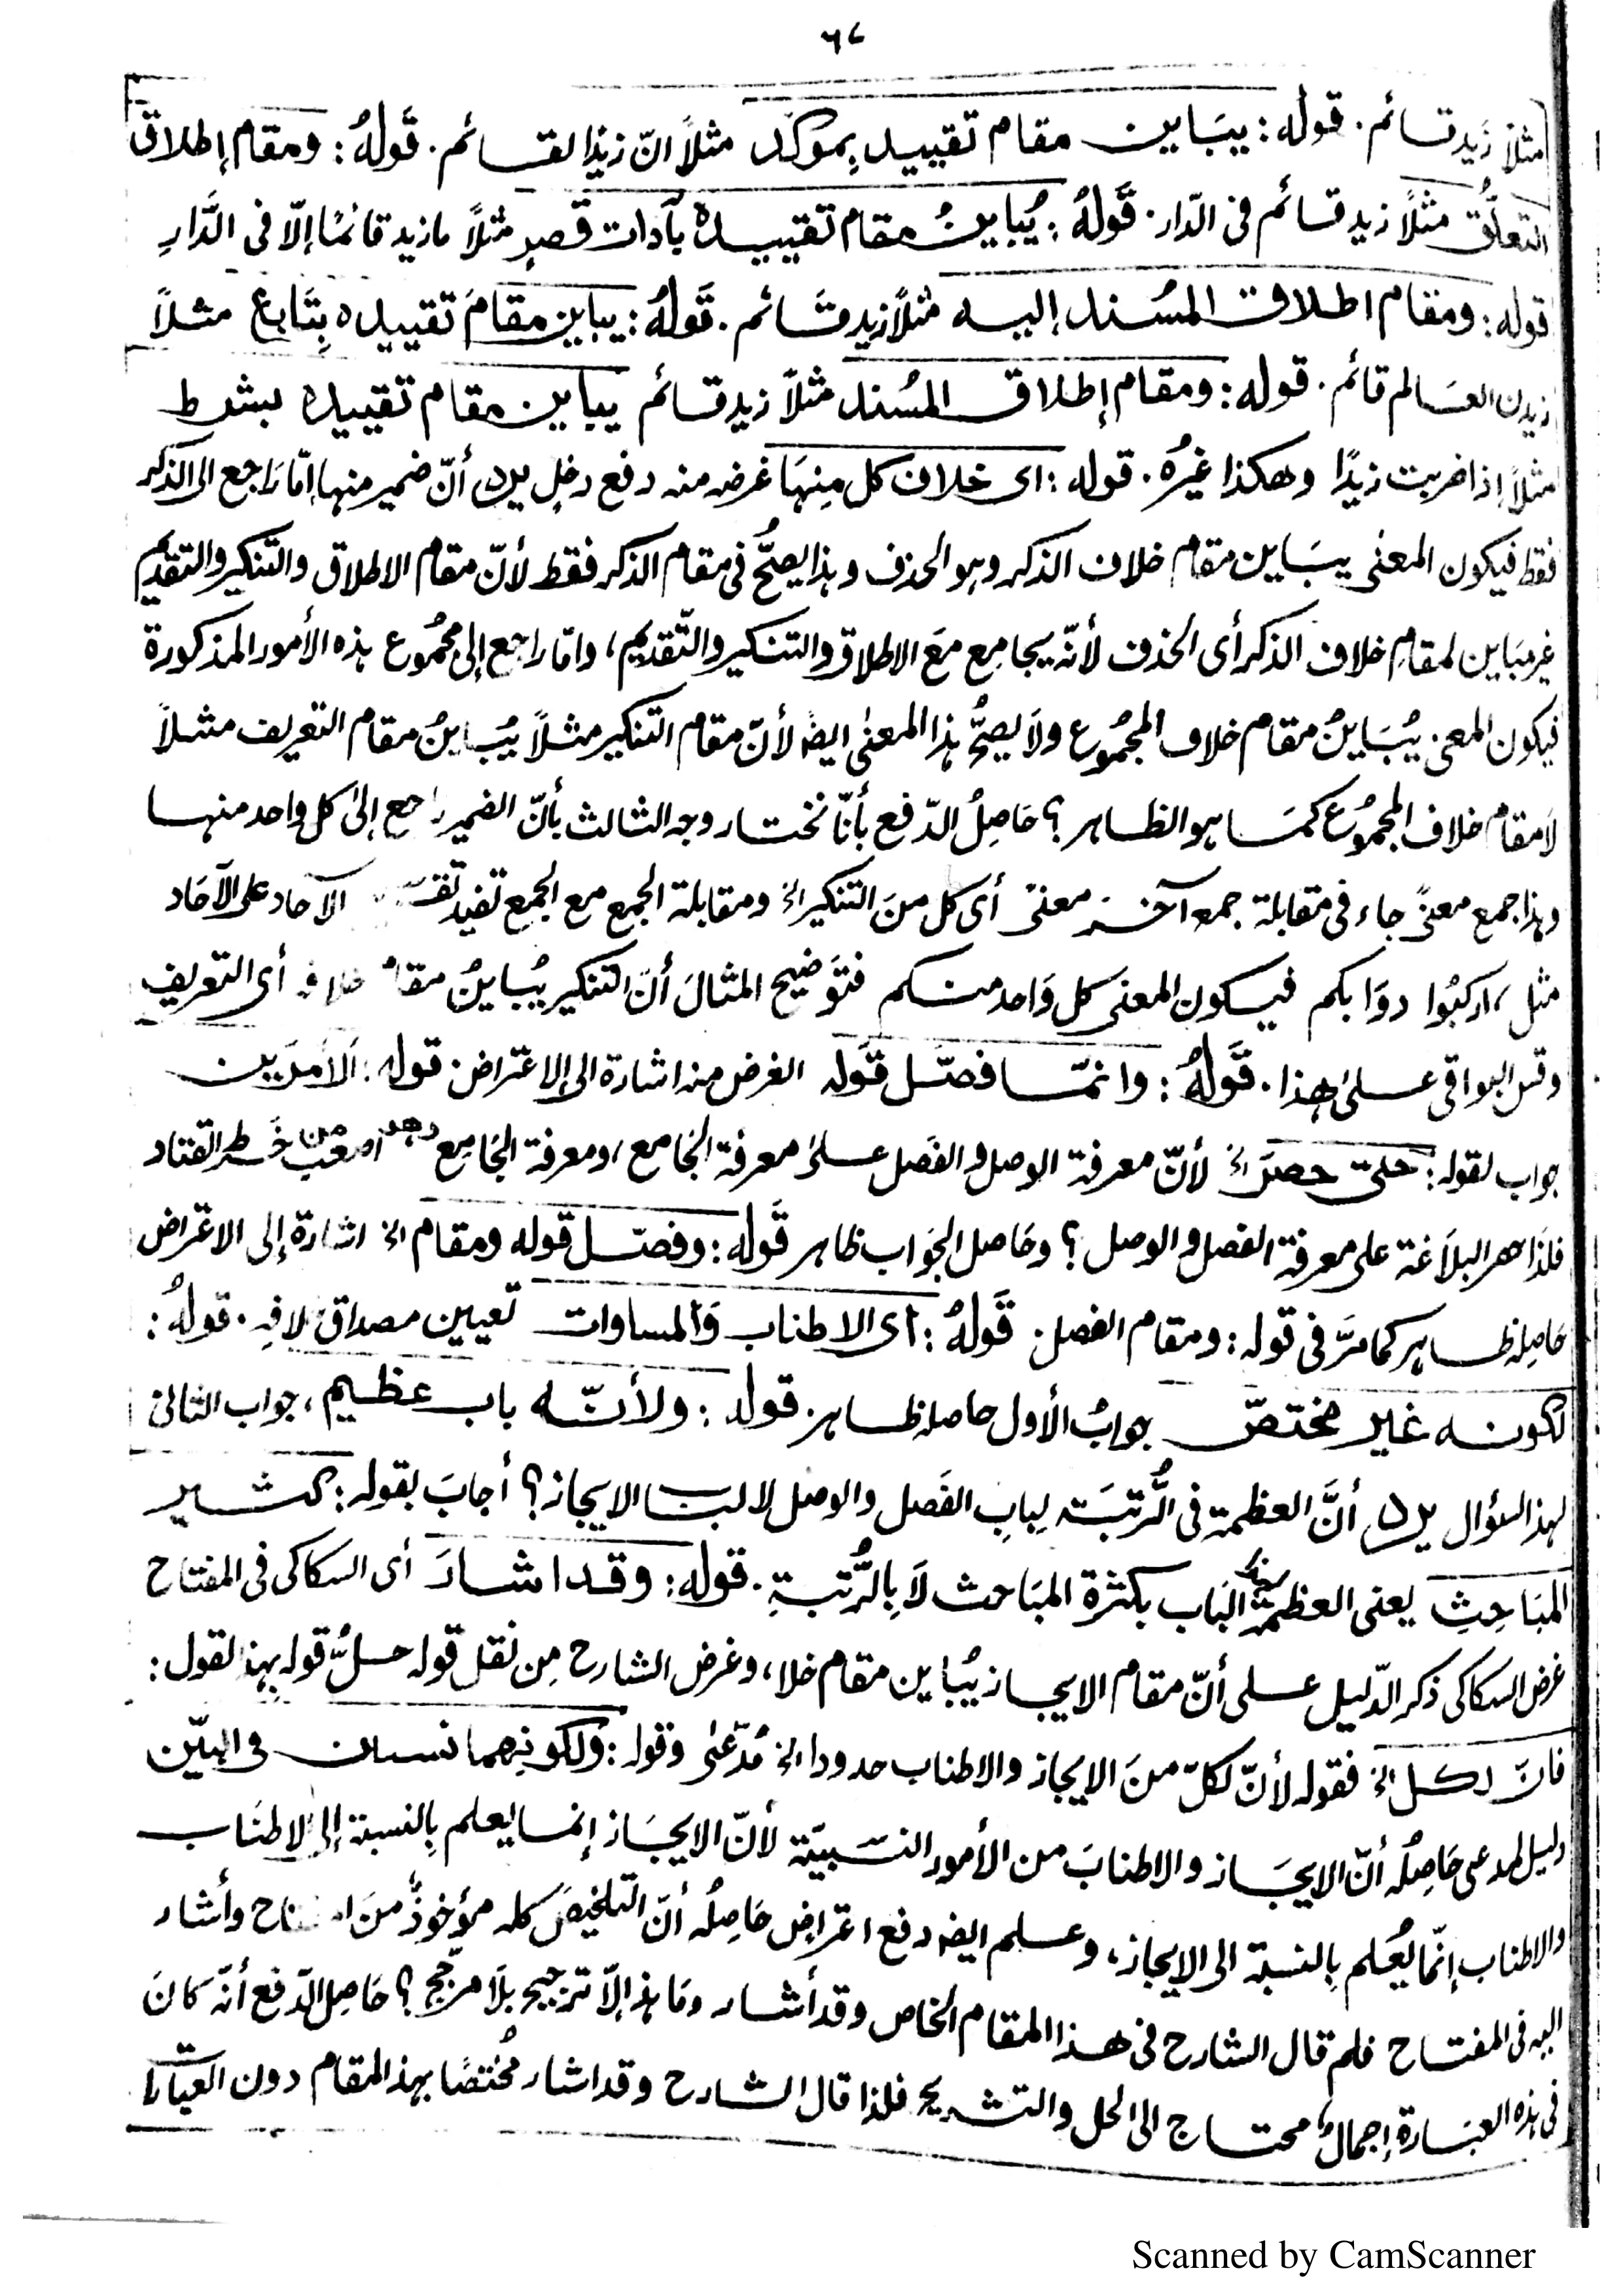 ٦٧
مثلاً زَيد قسائم. قوله: يبَاين مقام تقييد بِموكّد مثلاً انّ زيدًا لقائم. قَولهُ: ومقام إطلاق
التعلّق مثلاً زيد قائم فى الدّار. قَولهُ: يُباينُ مقام تقييده بآدات قصرٍ مثلاً ما زيد قائمًا إلّا فى الدَّارِ
قوله: ومقام اطلاق المسُند إليه مثلاً زيد قَائم. قَولهُ: يباين مقامَ تقييده بِتَابع مثلاً
زيدن العَالم قائم. قوله: ومقام إطلاق المسُند مثلاً زيد قائم يباين مقام تقييده بشرط
مثلاً إذا ضربت زيدًا وهكذا غيرُه. قوله: اى خلاف كل مِنهَا غرضه منه دفع دخلٍ يرد أنّ ضمير منها إمّا رَاجع الى الذكر
فقط فيكون المعنٰى يبَاين مقام خلاف الذكر وهو الحذف وهذا يصحُّ فى مقام الذكر فقط لأنّ مقام الاطلاق والتنكير والتقديم
غير مبَاين لمقامِ خلاف الذكر أى الحذف لأنّه يجامِع معَ الاطلاق والتنكير والتّقديم، وامّا راجع إلى مجمُوع هذه الأمور المذكورة
فيكون المعنى يُبَاينُ مقام خلاف المجمُوع ولَا يصحُّ هذا المعنٰى ايضا لأنّ مقام التنكير مثلاً يُبَاينُ مقام التعريف مثلاً
لَا مقام خلاف المجمُوع كمَا هو الظاهر؟ حَاصِلُ الدّفع بأنّا نختار وجه الثالث بأنّ الضمير راجع إلىٰ كل واحد منها
وهذا جمع معنىً جاء فى مقابلة جمع آخر معنىً أى كل منَ التنكير الخ ومقابلة الجمع مع الجمع تفيد الآحاد على الآحَاد
مثل اركبُوا دوَابكم فيكون المعنَى كل وَاحد منكم فتَوضيح المثالَ أنّ التنكير يُباينُ مقام خلافه أى التعريف
وقس البواقى علىٰ هذا. قَولهُ: وانمّا فصّل قَوله الغرض منه اشارة الى الاعتراض قوله: اَلأمرَين
جواب لقوله: حتى حصرَ الخ لأنّ معرفة الوصل والفصل علىٰ معرفة الجَامع، ومعرفة الجَامِع وهو اصعب من خَرط القتاد
فلذَا حصر البلَاغة على معرفة الفصل والوصل؟ وحَاصل الجَواب ظاهر قَوله: وفصّل قوله ومقام الخ اشارة إلى الاعتراض
حَاصله ظاهر كما مرَّ فى قوله: ومقام الفصل. قَولهُ: أى الاطناب وَالمساوات تعيين مصداق خلافِهِ. قولهُ:
لكونه غير مختصّ جوابُ الأول حاصله ظاهر. قوله: ولأنّه باب عظيم، جواب الثانى
لهذا السؤال يرد أنَّ العظمة فى الرُّتبَة لِبابِ الفَصل والوصل لا لباب الايجاز؟ أجابَ بقوله: كثير
المبَاحِثِ يعنى العظمة لهذا البَاب بكثرة المبَاحث لَا بِالرُّتبةِ. قوله: وقد اشارَ أى السكاكى فى المفتاح
غرض السكاكى ذكر الدّليل على أنّ مقام الايجاز يُباين مقام خلافه، وغرض الشارح مِن نقل قوله حلُّ قوله بهذا لقول:
فانّ لكل الخ فقوله لأنّ لكلّ منَ الايجاز والاطناب حدودا الخ مُدّعىٰ وقوله: وَلكونِهما نسبيين فى البيّن
دليل لمدعى حَاصِلُه أنّ الايجَاز والاطنابَ من الأمور النسّبيّة لأنّ الايجَاز إنما يعلم بِالنسبة إلى الاطنَاب
والاطناب إنّما يُعلم بِالنسبة الى الايجاز، وعلم ايضا دفع اعتراض حَاصِلُه أنّ التلخيصَ كله مؤخوذٌ منَ المفتاح وأشار
اليه فى المفتاح فلم قال الشارح فى هذا المقام الخاص وقد أشار ومَا هذا إلّا ترجيح بلَا مرجّح؟ حَاصِل الدّفع أنّه كانَ
فى هذه العبَارة إجمالٌ محتاج الى الحل والتشريح فلذا قال الشارح وقد اشار مُختصًا بهذا المقام دون العبارات
Scanned by CamScanner